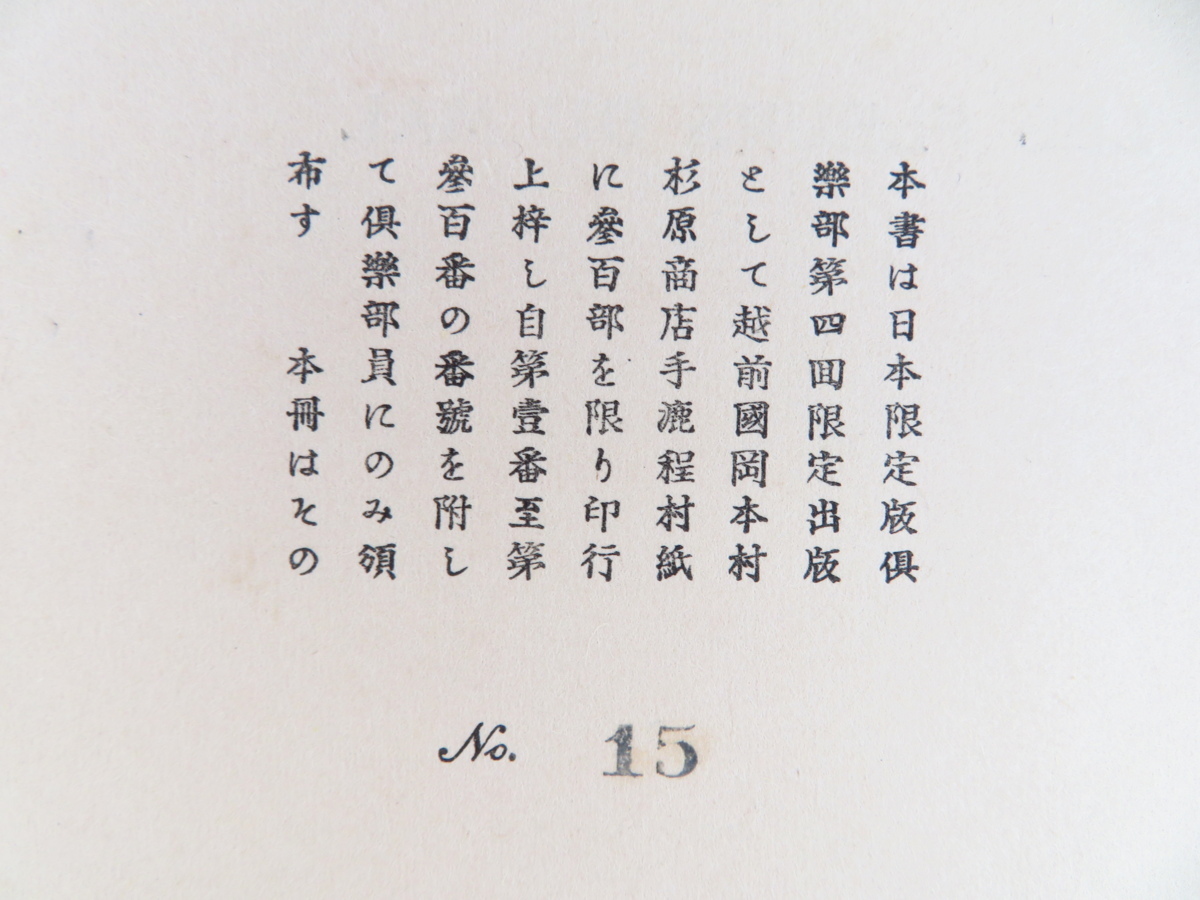 本書は日本限定版倶
樂部第四回限定出版
として越前國岡本村
杉原商店手漉程村紙
に參百部を限り印行
上梓し自第壹番至第
參百番の番號を附し
て倶樂部員にのみ頒
布す　本冊はその
No. 15